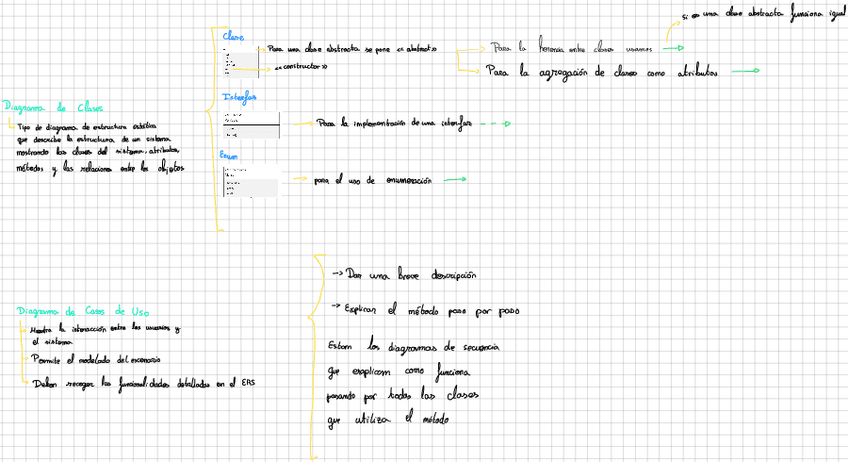 si es una clase abstracta funciona igual
Clase
Para una clase abstracta se pone << abstract >>
<< constructor >>
Para la herencia entre clases usamos
Para la agregación de clases como atributos
Interfas
Para la implementación de una interfas
Enum
para el uso de enumeración
Diagrama de Clases
Tipo de diagrama de estructura estática
que describe la estructura de un sistema
mostrando las clases del sistema, atributos,
métodos y las relaciones entre los objetos
Diagrama de Casos de Uso
Muestra la interacción entre los usuarios y
el sistema
Permite el modelado del escenario
Deben recoger las funcionalidades detalladas en el ERS
-> Dar una breve descripción
-> Explican el método paso por paso
Estan los diagramas de secuencia
que explican como funciona
pasando por todas las clases
que utiliza el método